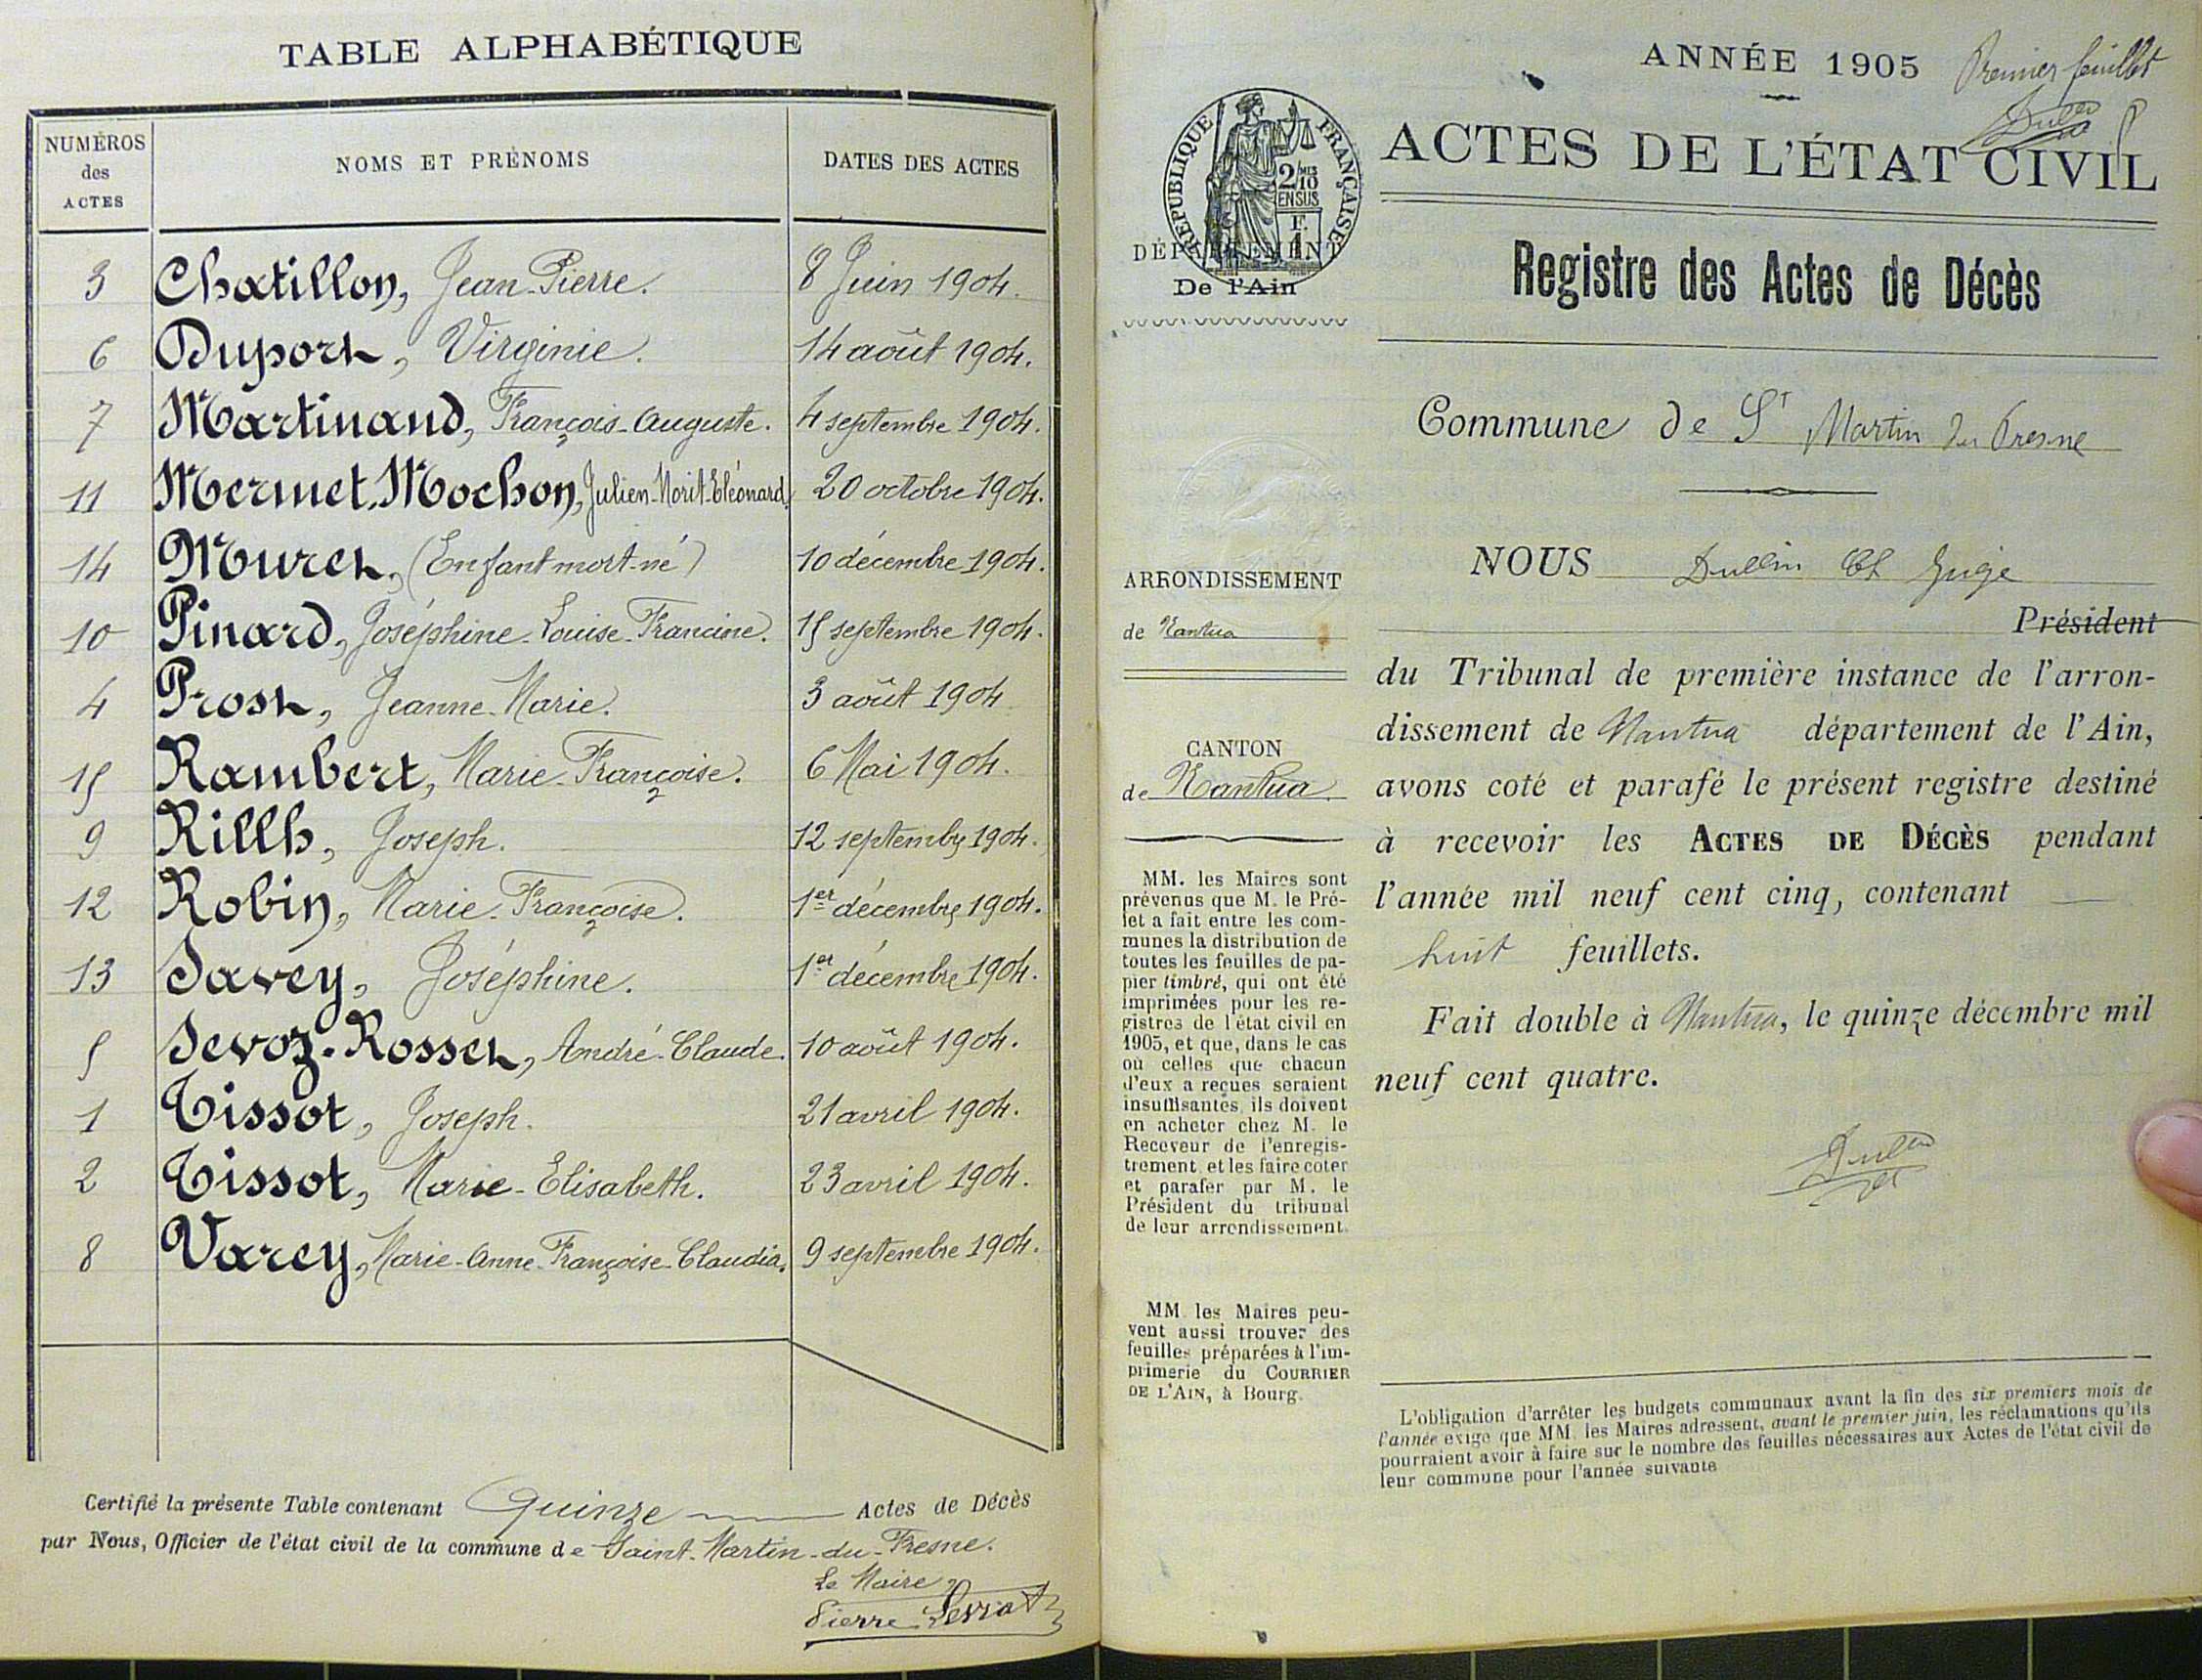 TABLE ALPHABÉTIQUE
NUMÉROS des ACTES NOMS ET PRÉNOMS DATES DES ACTES
3 Chatillon, Jean-Pierre. 8 Juin 1904.
6 Duport, Virginie. 14 août 1904.
7 Martinand, François-Auguste. 4 septembre 1904.
11 Mermet-Mochon, Julien-Norit-Eléonard. 20 octobre 1904.
14 Muret, (Enfant mort-né) 10 décembre 1904.
10 Pinard, Joséphine-Louise-Francine. 15 septembre 1904.
4 Prost, Jeanne-Marie. 3 août 1904
15 Rambert, Marie-Françoise. 6 Mai 1904.
9 Rillh, Joseph. 12 septembre 1904.
12 Robin, Marie-Françoise. 1er décembre 1904.
13 Savey, Joséphine. 1er décembre 1904.
5 Sevoz-Rosset, André-Claude. 10 août 1904.
1 Tissot, Joseph. 21 avril 1904.
2 Tissot, Marie-Elisabeth. 23 avril 1904.
8 Varey, Marie-Anne-Françoise-Claudia. 9 septembre 1904.
Certifié la présente Table contenant Quinze Actes de Décès
par Nous, Officier de l'état civil de la commune de Saint-Martin-du-Fresne.
Le Maire,
Pierre
ANNÉE 1905 Premier feuillet
Dullin
ACTES DE L'ÉTAT CIVIL
RÉPUBLIQUE FRANÇAISE
2/10
EN SUS
F.
1
DÉPARTEMENT
De l'Ain
Registre des Actes de Décès
Commune de St Martin du Fresne
NOUS Dullin Juge
Président
ARRONDISSEMENT
de Nantua
CANTON
de Nantua
du Tribunal de première instance de l'arron-
dissement de Nantua département de l'Ain,
avons coté et parafé le présent registre destiné
à recevoir les ACTES DE DÉCÈS pendant
l'année mil neuf cent cinq, contenant
huit feuillets.
Fait double à Nantua, le quinze décembre mil
neuf cent quatre.
Dullin
MM. les Maires sont
prévenus que M. le Pré-
fet a fait entre les com-
munes la distribution de
toutes les feuilles de pa-
pier timbré, qui ont été
imprimées pour les re-
gistres de l'état civil en
1905, et que, dans le cas
où celles que chacun
d'eux a reçues seraient
insuffisantes, ils doivent
en acheter chez M. le
Receveur de l'enregis-
trement, et les faire coter
et parafer par M. le
Président du tribunal
de leur arrondissement.
MM. les Maires peu-
vent aussi trouver des
feuilles préparées à l'im-
primerie du COURRIER
DE L'AIN, à Bourg.
L'obligation d'arrêter les budgets communaux avant la fin des six premiers mois de
l'année exige que MM. les Maires adressent, avant le premier juin, les réclamations qu'ils
pourraient avoir à faire sur le nombre des feuilles nécessaires aux Actes de l'état civil de
leur commune pour l'année suivante